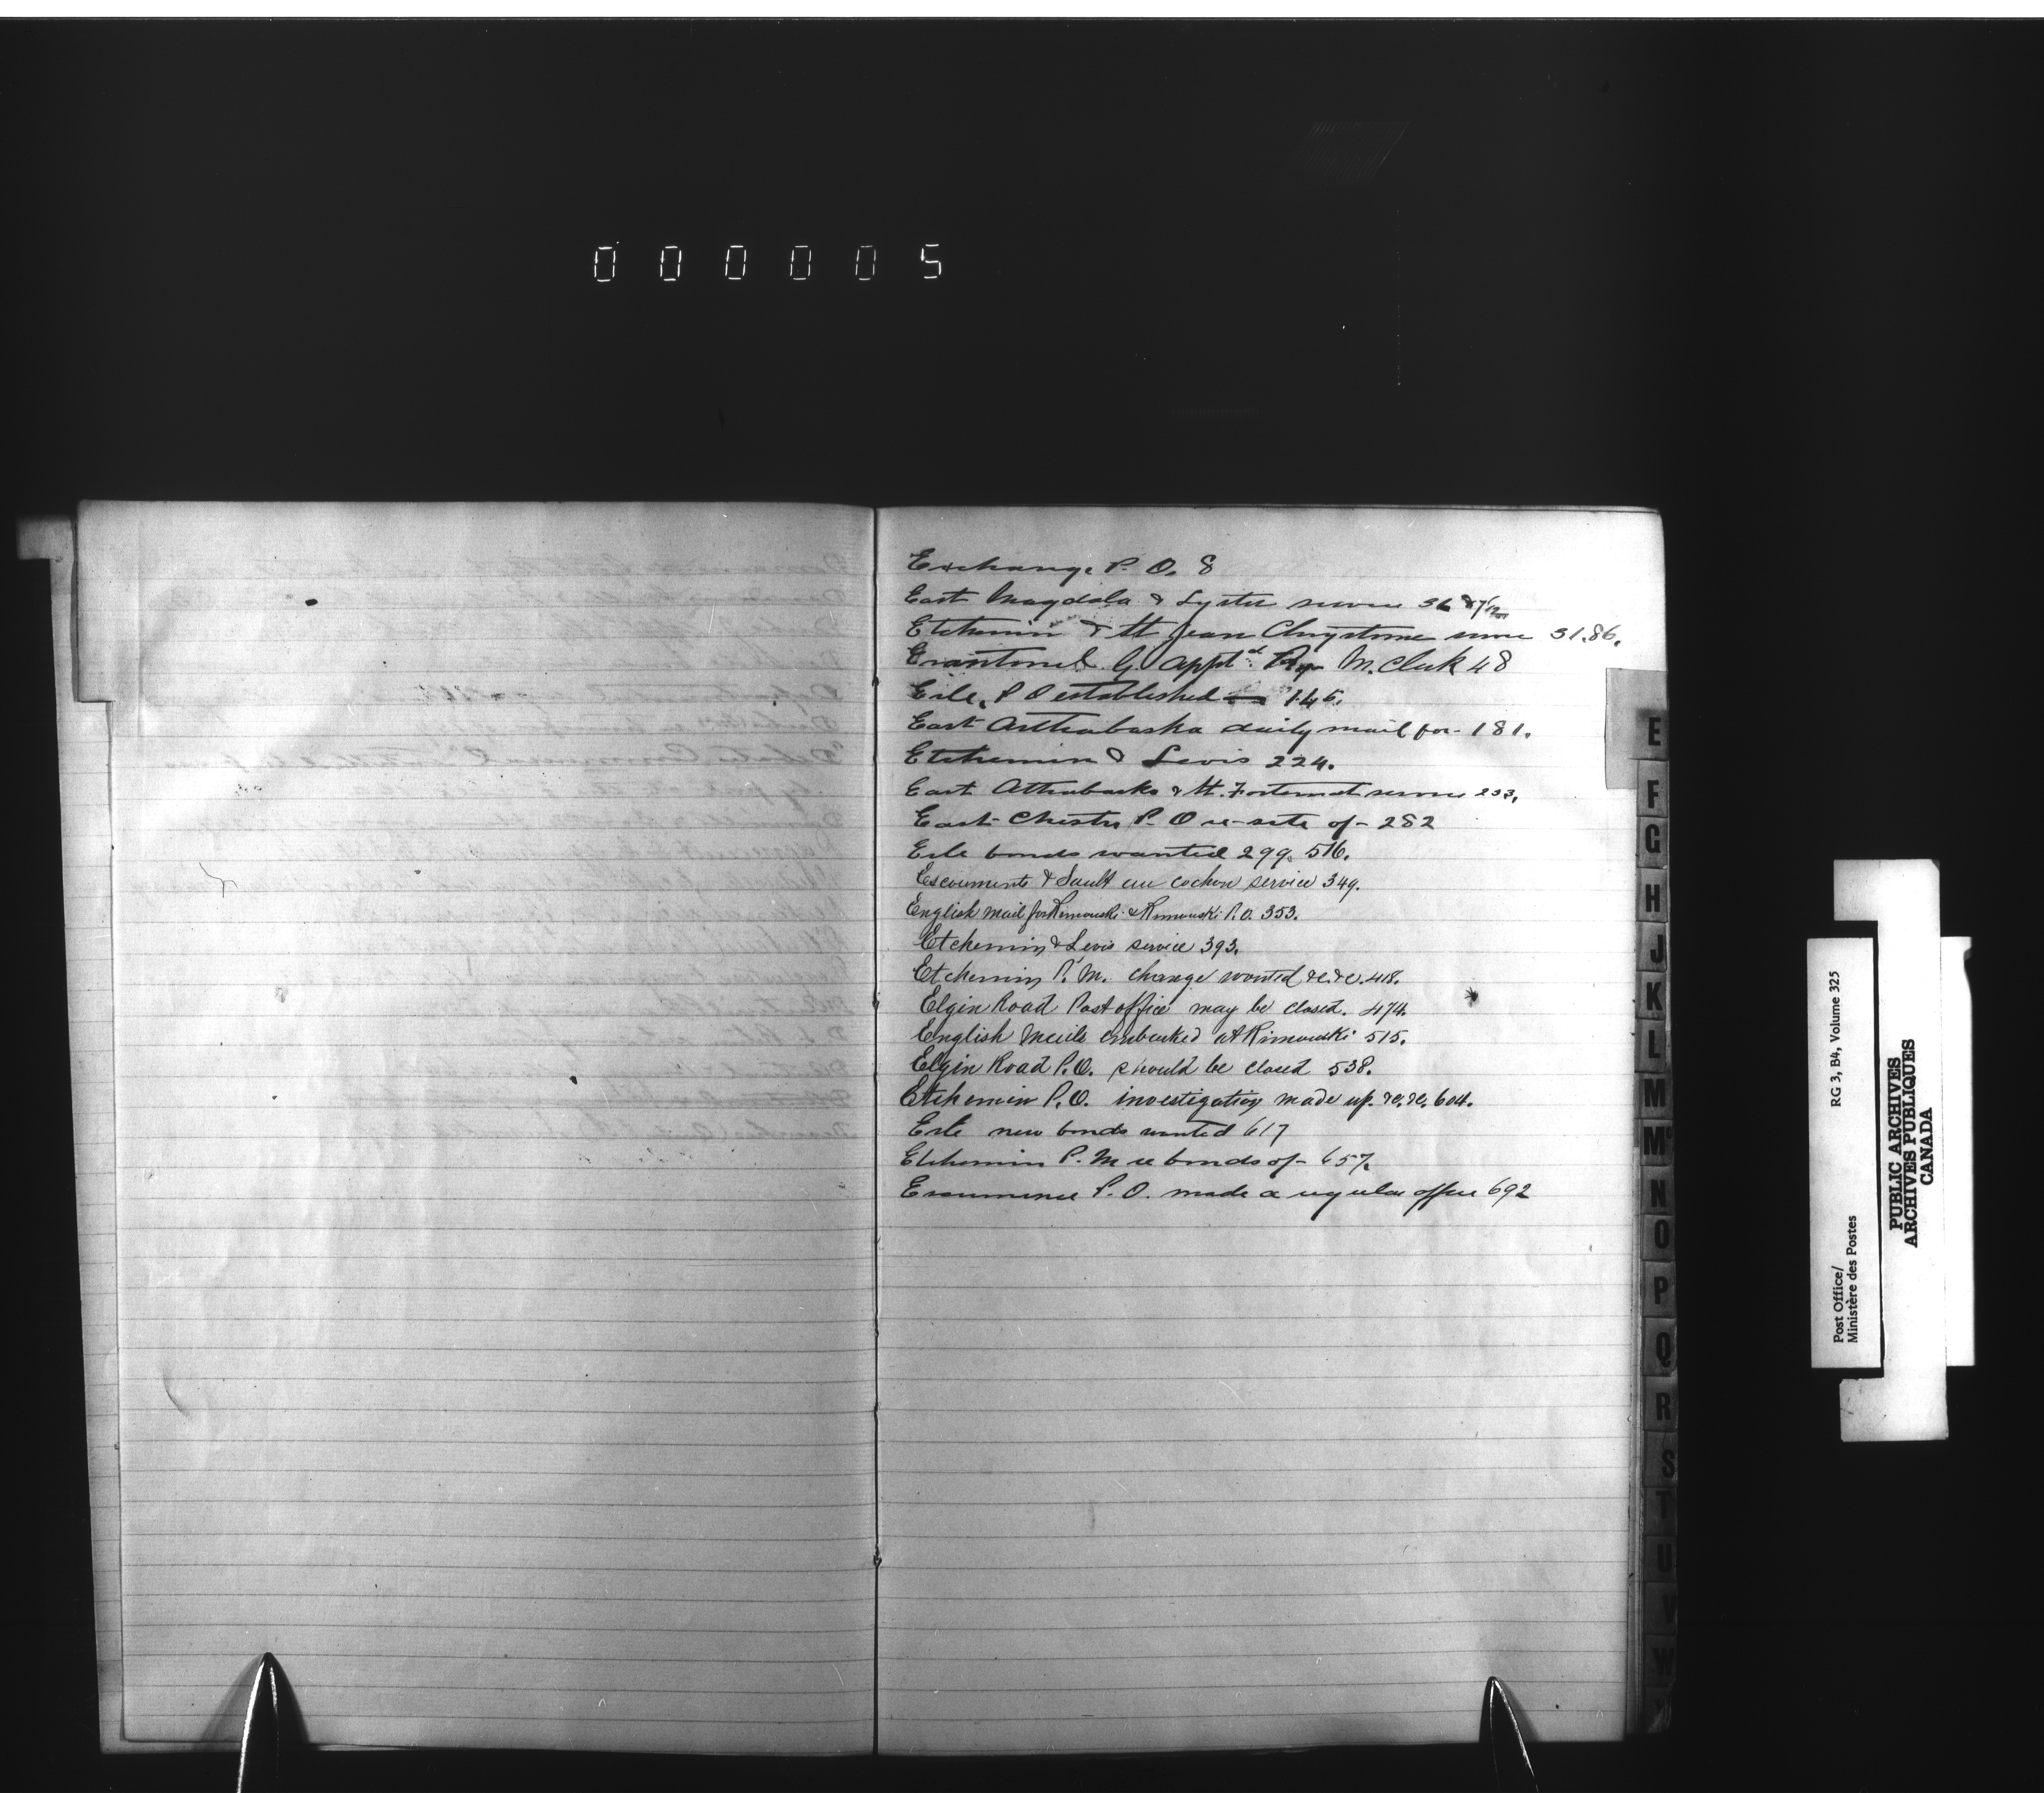 000005
Exchange P. O. 8
East Magdala & Lyster service 36
Etchemin & St Jean Chrysostome service 31.86.
G. appt.d Ry M. Clerk 48
Erle, P O established 146.
East Arthabaska daily mail for - 181.
Etchemin & Levis 224.
East Athabaska & St. Fortunat service 233.
East Chester P. O re-site of - 282
Erle bonds wanted 299. 516.
Escouments & Sault au cochon service 349.
English mail for Rimouski & Rimouski P.O. 353.
Etchemin & Levis service 393.
Etchemin P.M. change wanted &c. &c. 418.
Elgin Road Post office may be closed. 474.
English Mails embarked at Rimouski 515.
Elgin Road P.O. should be closed 538.
Etchemin P.O. investigation made up. &c. &c. 604.
Erle new bonds wanted 617
Etchemin P. M re bonds of - 657.
P. O. made a regular office 692
E
F
G
H
J
K
L
M
Mc
N
O
P
Q
R
S
T
U
V
W
Post Office/
Ministère des Postes
RG 3, B4, Volume 325
PUBLIC ARCHIVES
ARCHIVES PUBLIQUES
CANADA